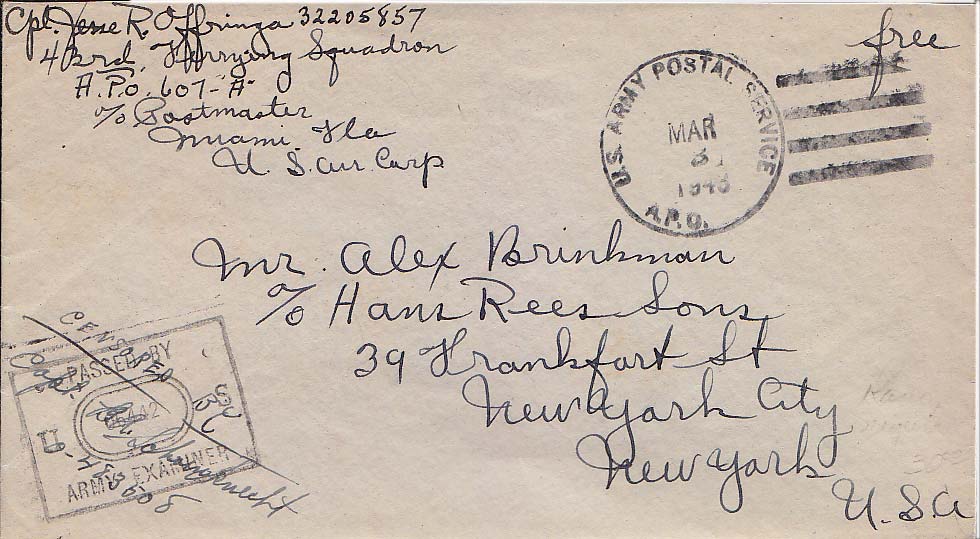 Cpl. Jesse R. Offringa 32205857
43rd. Ferrying Squadron
A.P.O. 607-"A"
℅ Postmaster
Miami Fla
U. S. Air Corp
free
U.S. ARMY POSTAL SERVICE
MAR
1943
A.P.O.
Mr. Alex Brinkman
℅ Hans Rees Sons
39 Frankfort St
New York City
New York
U.S.A
CENSORED BY
PASSED BY
Capt.
ARMY EXAMINER